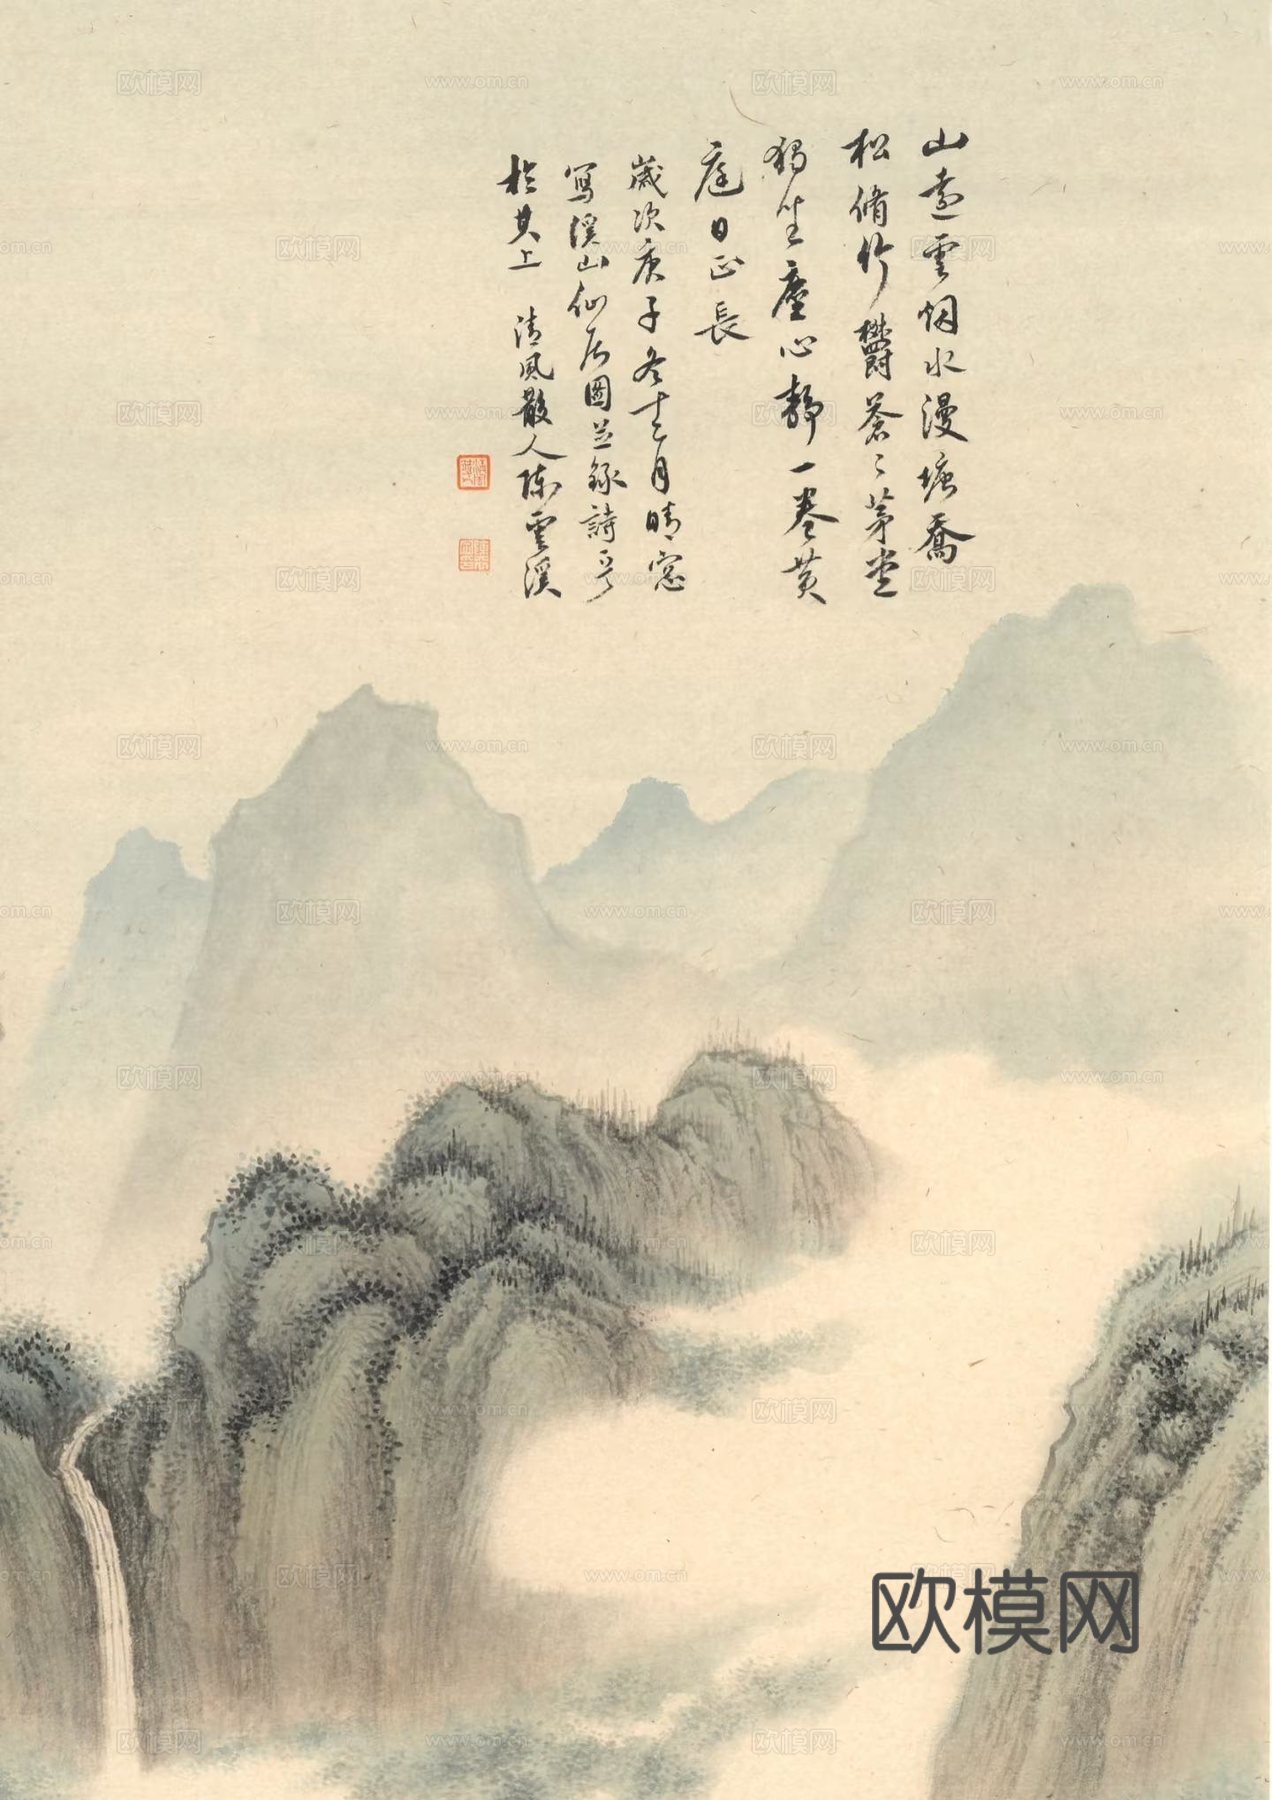 山遠雲烟水漫塘喬
松脩竹欝蒼〻茅堂
獨坐塵心靜一卷黄
庭日正長
歲次庚子冬十二月晴窓
寫溪山仙居圖並錄詩
於其上 清風散人陳雲溪
欧模网
www.om.cn